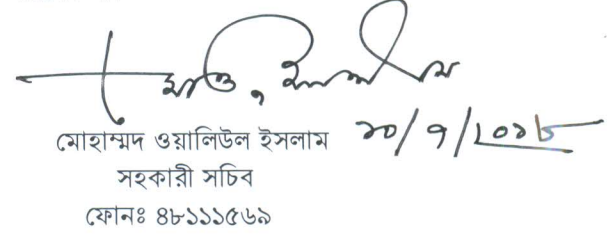 মোহাম্মদ ওয়ালিউল ইসলাম ১০/৭/২০১৮
সহকারী সচিব
ফোনঃ ৪৮১১১৫৬৯